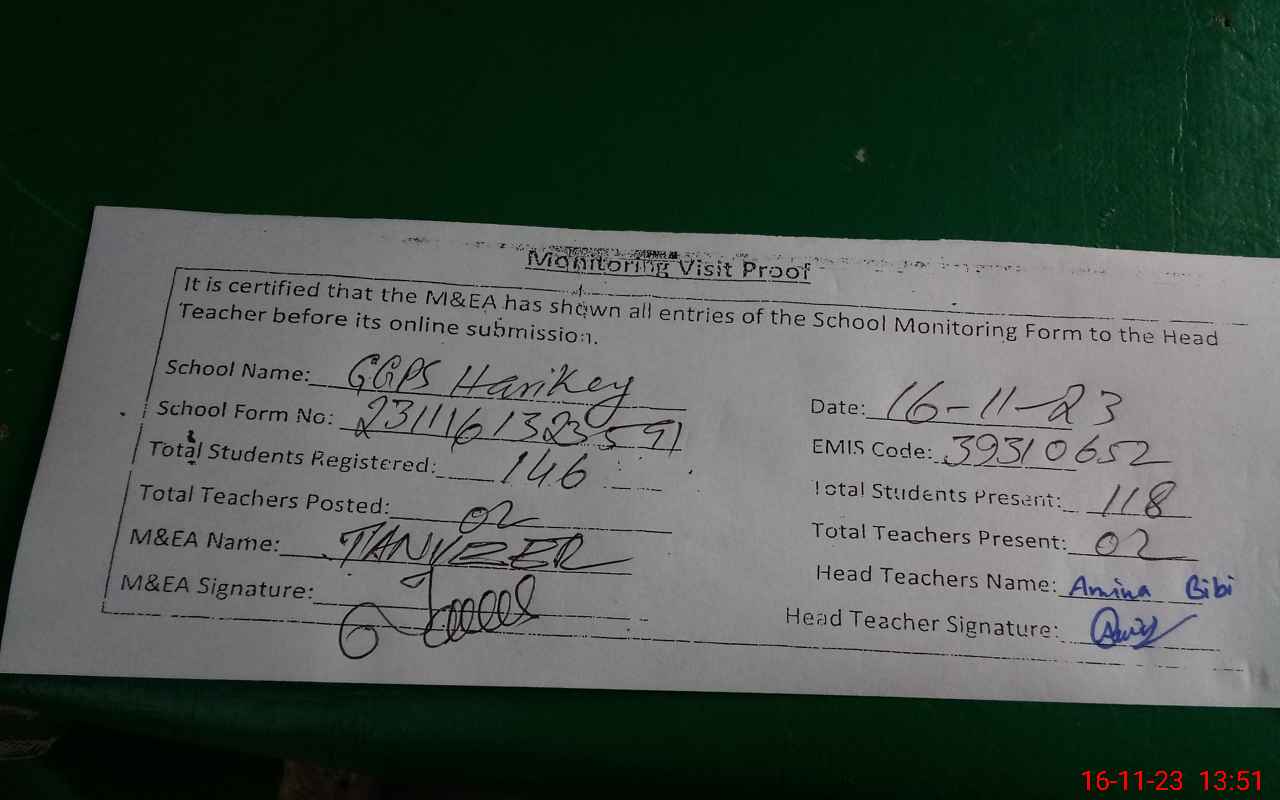 Monitoring Visit Proof
It is certified that the M&EA has shown all entries of the School Monitoring Form to the Head
Teacher before its online submission.
School Name: GGPS Harikey
Date: 16-11-23
School Form No: 23111613235591
EMIS Code: 39310652
Total Students Registered: 146
Total Students Present: 118
Total Teachers Posted: 02
Total Teachers Present: 02
M&EA Name: TANVEER
Head Teachers Name: Amina Bibi
M&EA Signature:
Head Teacher Signature:
16-11-23 13:51